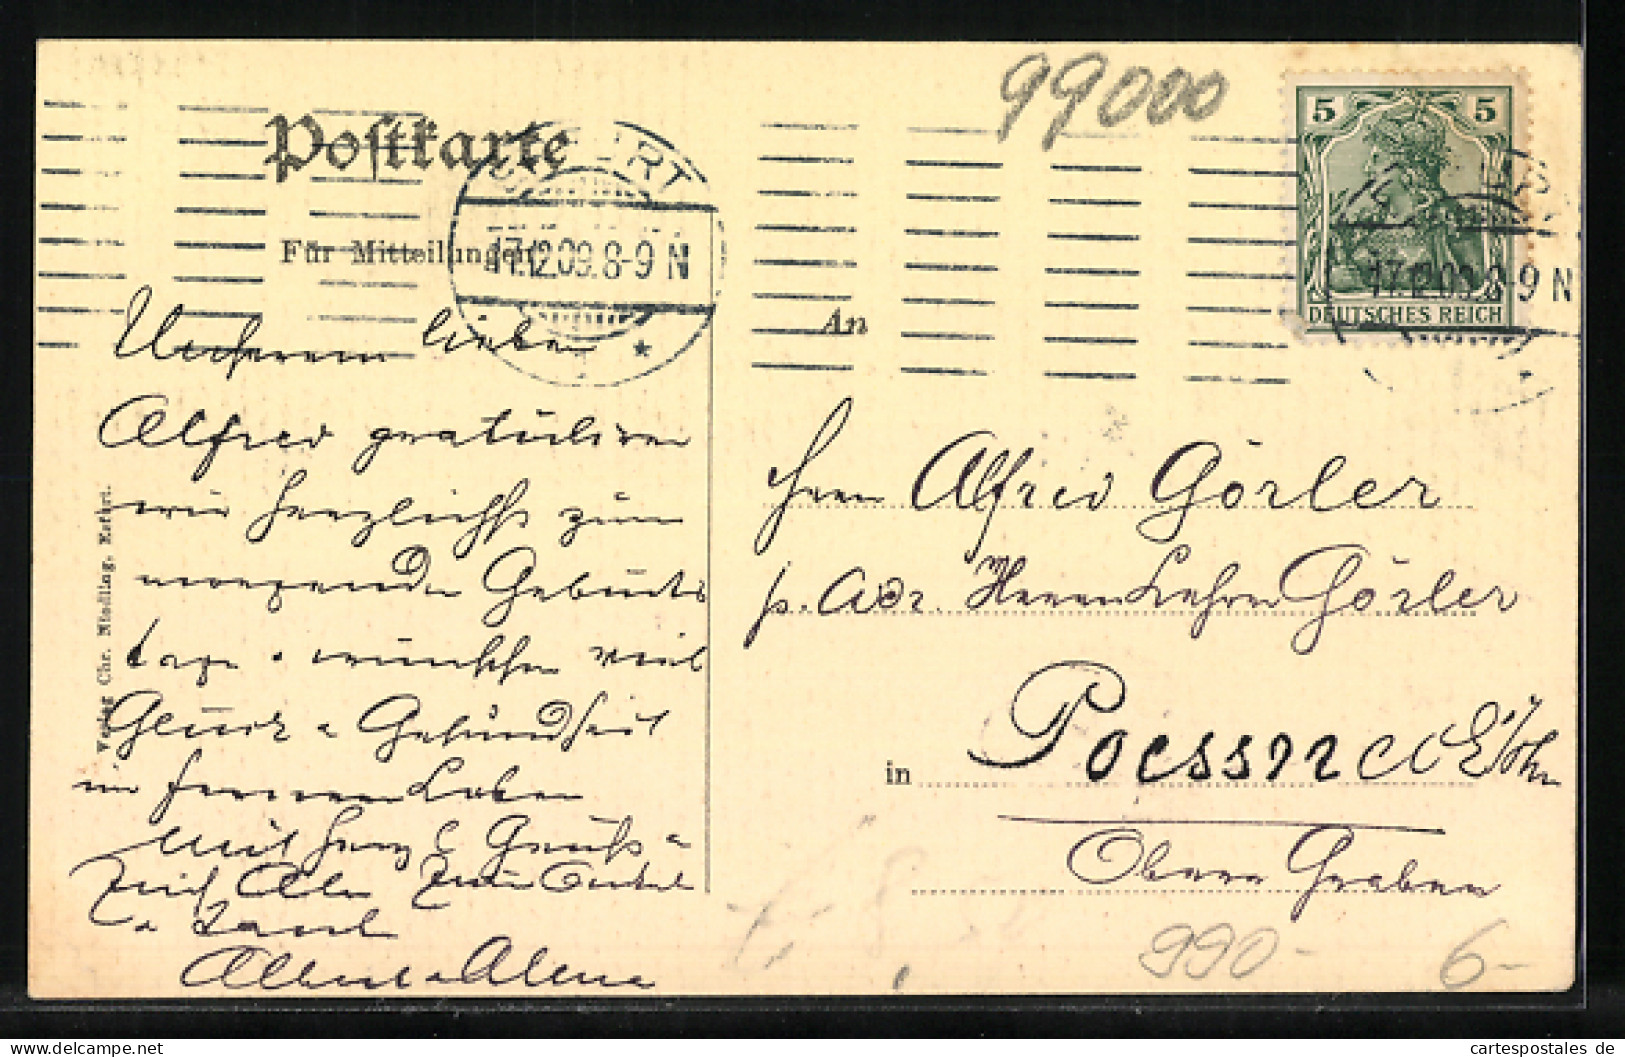 99000
Postkarte
ERFURT
17.12.09. 8-9 N
5 5
DEUTSCHES REICH
17.12.09. 8-9 N
Für Mitteilungen
An
Unserem lieben
Alfred gratuliren
wir herzlichst zum
morgenden Geburts
tage u. wünschen viel
Glück u Gesundheit
im ferneren Leben
Mit herzl Gruß u
Kuß Dein Onkel
u Tante
Albert u Alma
Herrn Alfred Görler
p. Adr. Herrn Lehrer Görler
in Poessneck i/Th.
Obere Graben
990-
6-
Verlag Chr. Niedling, Erfurt.
cartespostales de